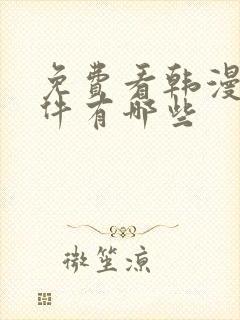 免费看韩漫
件有哪些
微笙凉